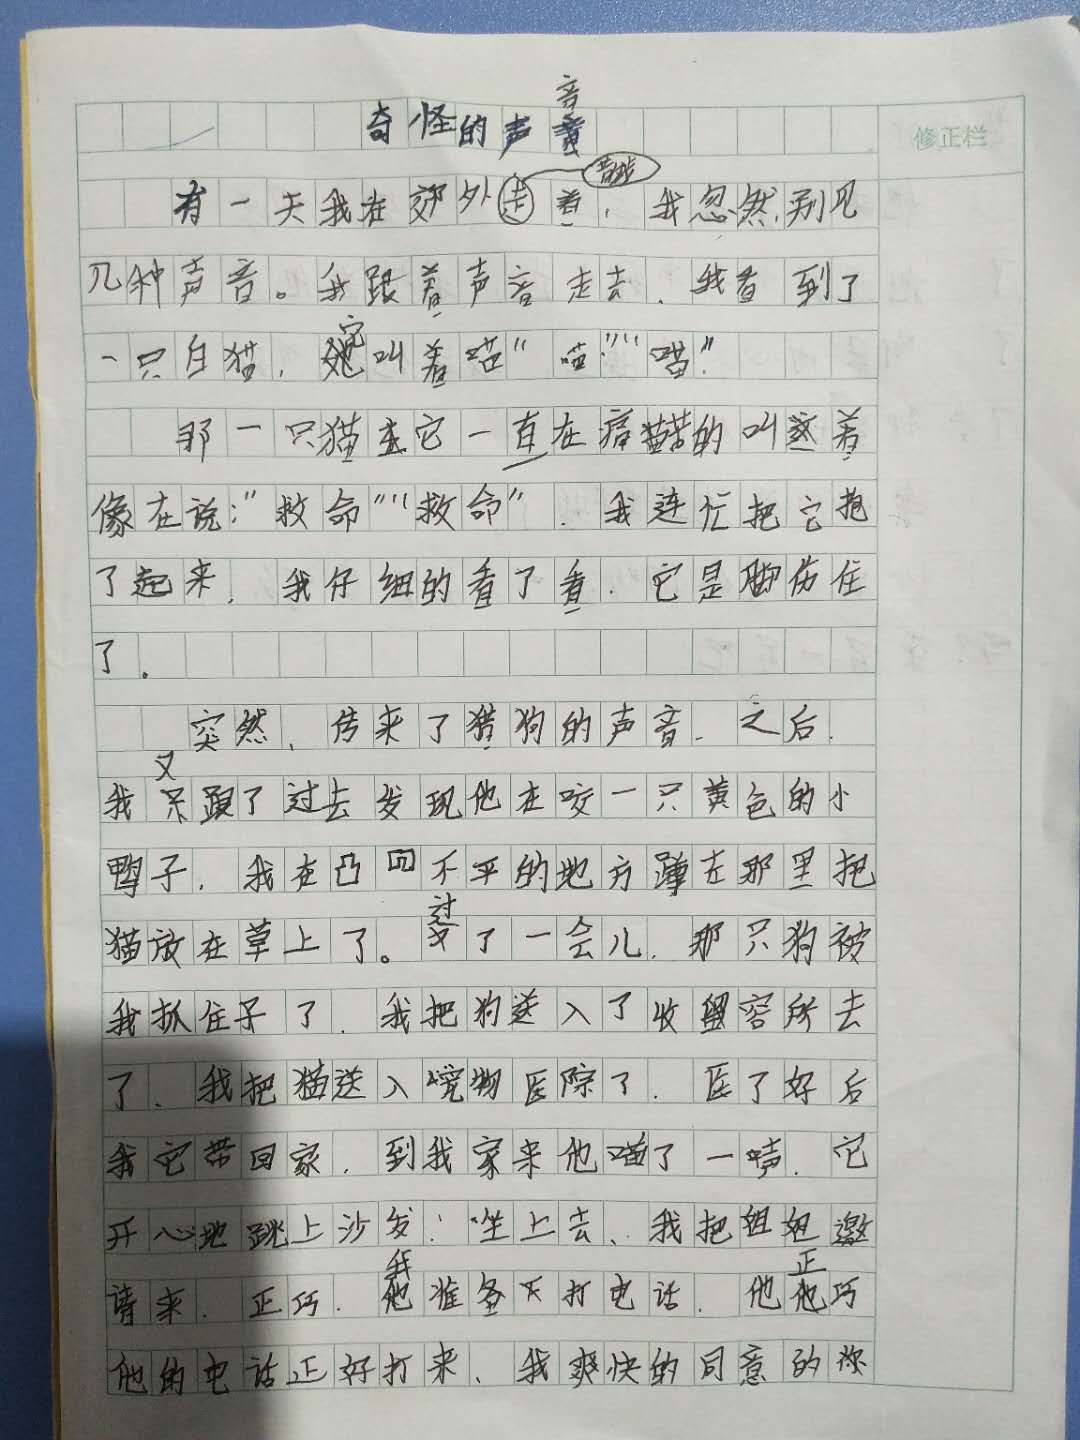 奇怪的声音
修正栏
有一天我在郊外走着，我忽然,别见
几种声音。我跟着声音走去.我看到了
一只白猫，它叫着喵"喵""喵"
那一只猫主它一直在痛苦的叫这着
像在说："救命""救命".我连忙把它抱
了起来,我仔细的看了看.它是脚伤住
了.
突然、传来了猎狗的声音.之后.
我又跟了过去发现他在咬一只黄色的小
鸭子.我在凸凹不平的地方蹲在那里把
猫放在草上了。过了一会儿.那只狗被
我抓住子了.我把狗送入了收留容所去
了.我把猫送入宠物医院了.医了好后
我它带回家.到我家来他喵了一声.它
开心地跳上沙发!坐上去、我把姐姐邀
请来.正巧.我准备下打电话.他正巧
他的电话正好打来、我爽快的同意的你